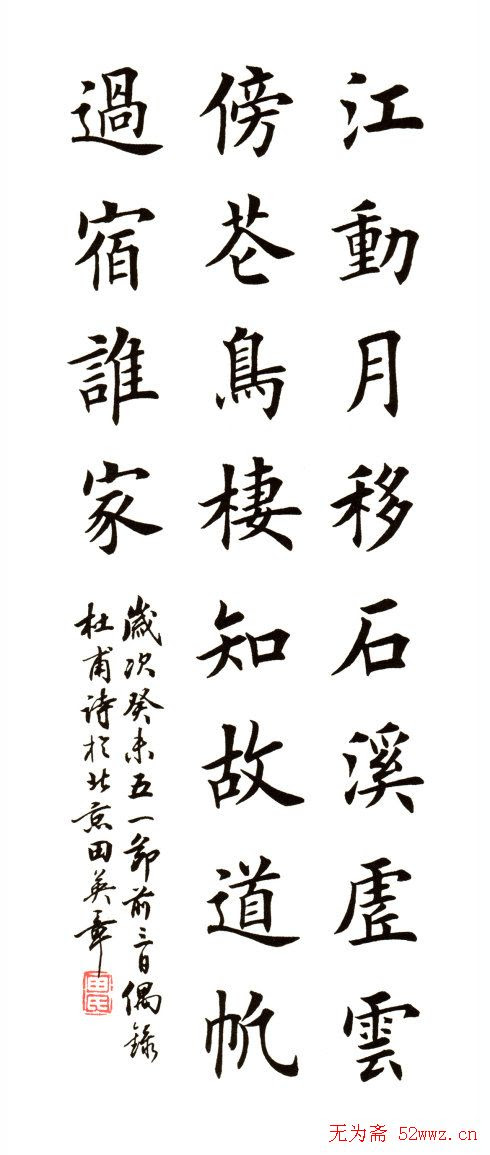 江動月移石溪虚雲
傍花鳥棲知故道帆
過宿誰家
歲次癸未五一節前三日偶錄
杜甫诗於北京田英章
田氏
无为斋 52wwz.cn